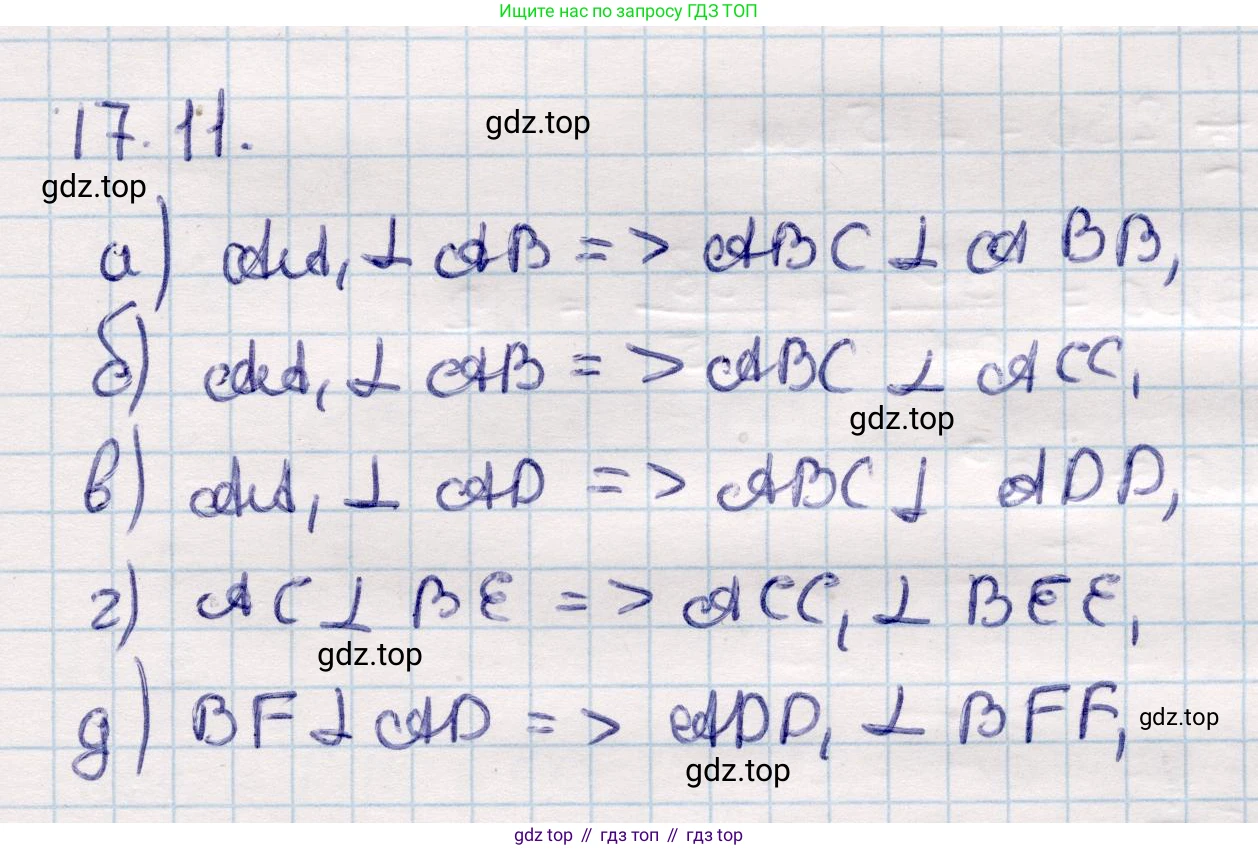 Ищите нас по запросу ГДЗ ТОП
17.11.
gdz.top
gdz.top
а) AA₁ ⊥ AB => ABC ⊥ ABB₁
б) AA₁ ⊥ AB => ABC ⊥ ACC₁
gdz.top
в) AA₁ ⊥ AD => ABC ⊥ ADD₁
г) AC ⊥ BE => ACC₁ ⊥ BEE₁
gdz.top
д) BF ⊥ AD => ADD₁ ⊥ BFF₁
gdz.top
gdz.top
gdz.top // гдз топ // gdz.top